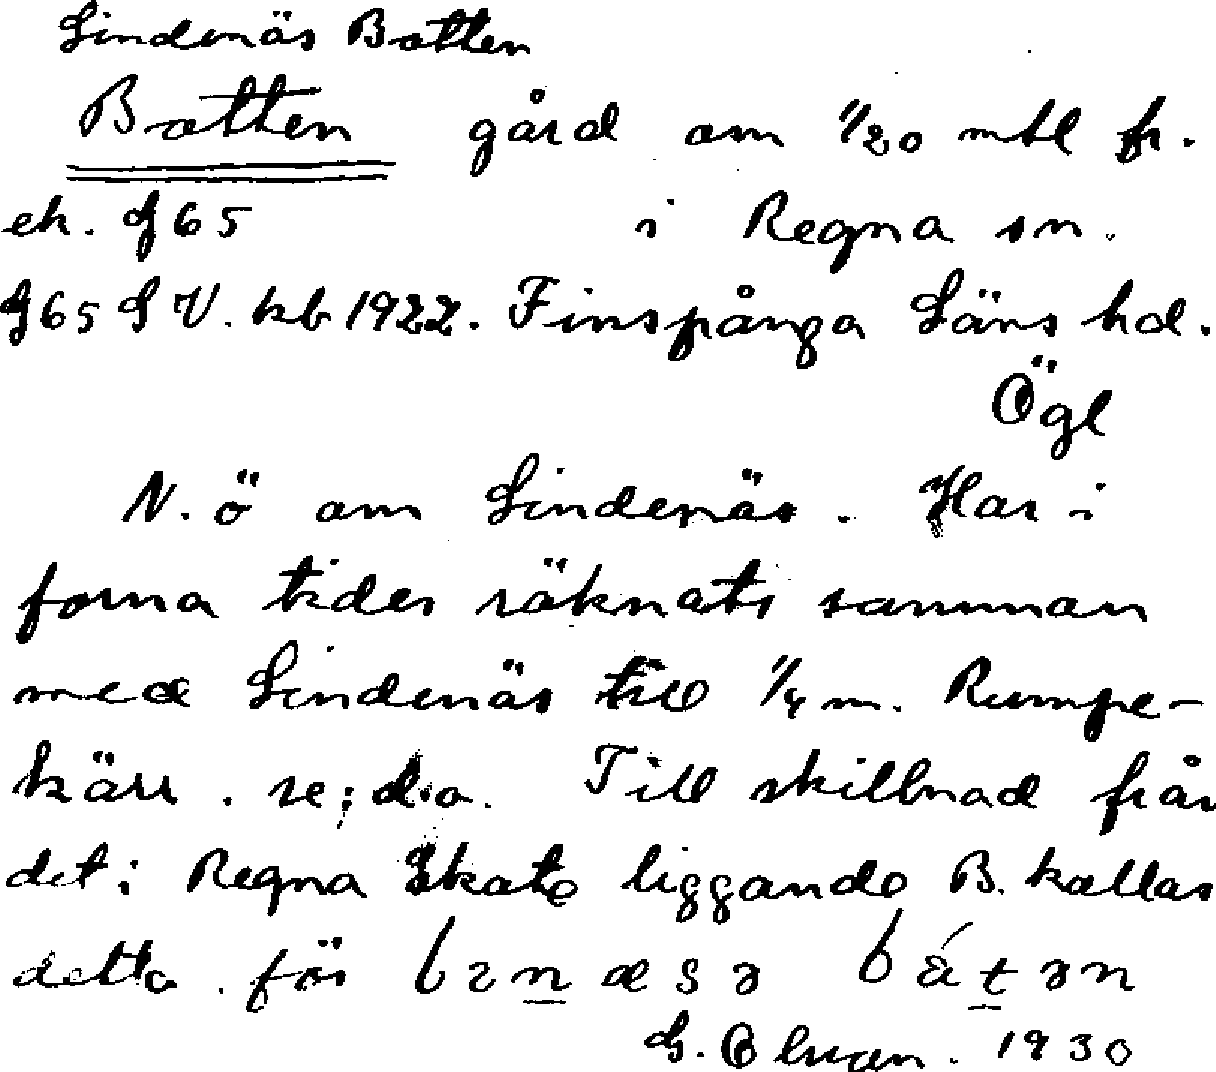 Lindenäs Botten
Botten gård om 1/20 mtl fr.
ek. J65 i Regna sn.
J65 S V. kb 1922. Finspånga Läns hd.
Ögl
N. ö om Lindenäs. Har i
forna tider räknats samman
med Lindenäs till 1/4 m. Rumpe-
kärr. se; d.o. Till skillnad från
det i Regna Skate liggande B. kallas
detta för
1930